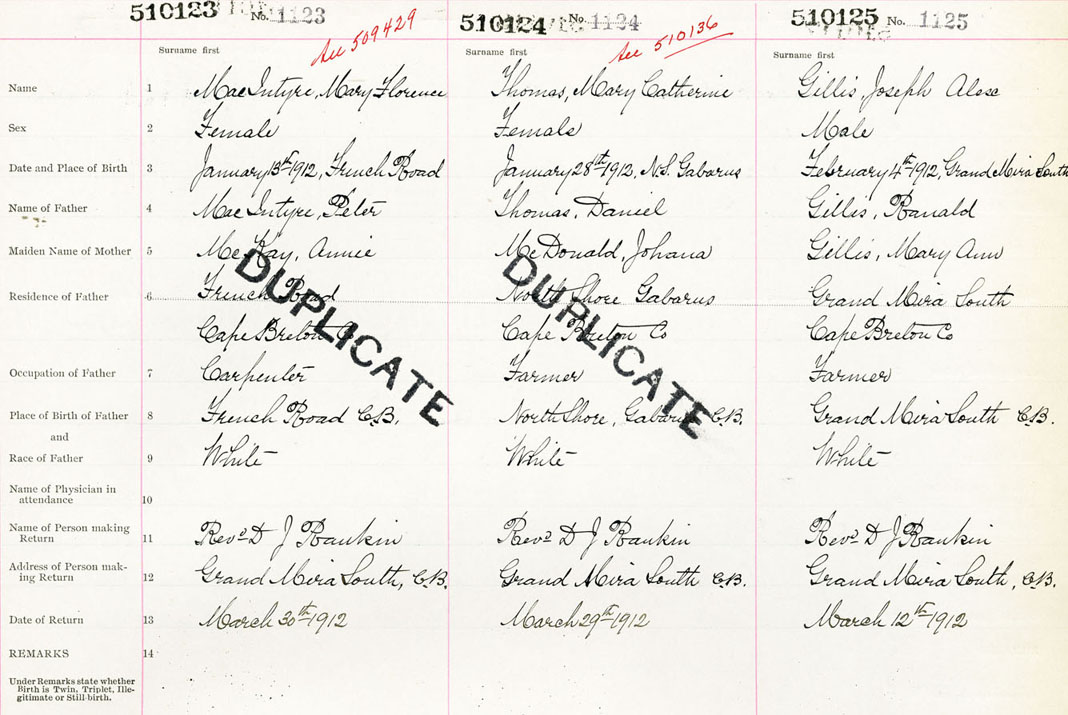 510123 No. 1123 510124 No. 1124 510125 No. 1125
See 509429 See 510136
Surname first Surname first Surname first
Name 1 MacIntyre, Mary Florence Thomas, Mary Catherine Gillis, Joseph Alex
Sex 2 Female Female Male
Date and Place of Birth 3 January 13th 1912, French Road January 28th 1912, N.S. Gabarus February 4th 1912, Grand Mira South
Name of Father 4 MacIntyre, Peter Thomas, Daniel Gillis, Ranald
Maiden Name of Mother 5 McKay, Annie McDonald, Johana Gillis, Mary Ann
Residence of Father 6 French Road North Shore Gabarus Grand Mira South
Cape Breton Co Cape Breton Co Cape Breton Co
DUPLICATE DUPLICATE
Occupation of Father 7 Carpenter Farmer Farmer
Place of Birth of Father 8 French Road C.B. North Shore, Gabarus C.B. Grand Mira South C.B.
and
Race of Father 9 White White White
Name of Physician in
attendance 10
Name of Person making
Return 11 Revd D J Rankin Revd D J Rankin Revd D J Rankin
Address of Person mak-
ing Return 12 Grand Mira South, C.B. Grand Mira South C.B. Grand Mira South, C.B.
Date of Return 13 March 30th 1912 March 29th 1912 March 12th 1912
REMARKS 14
Under Remarks state whether
Birth is Twin, Triplet, Ille-
gitimate or Still-birth.